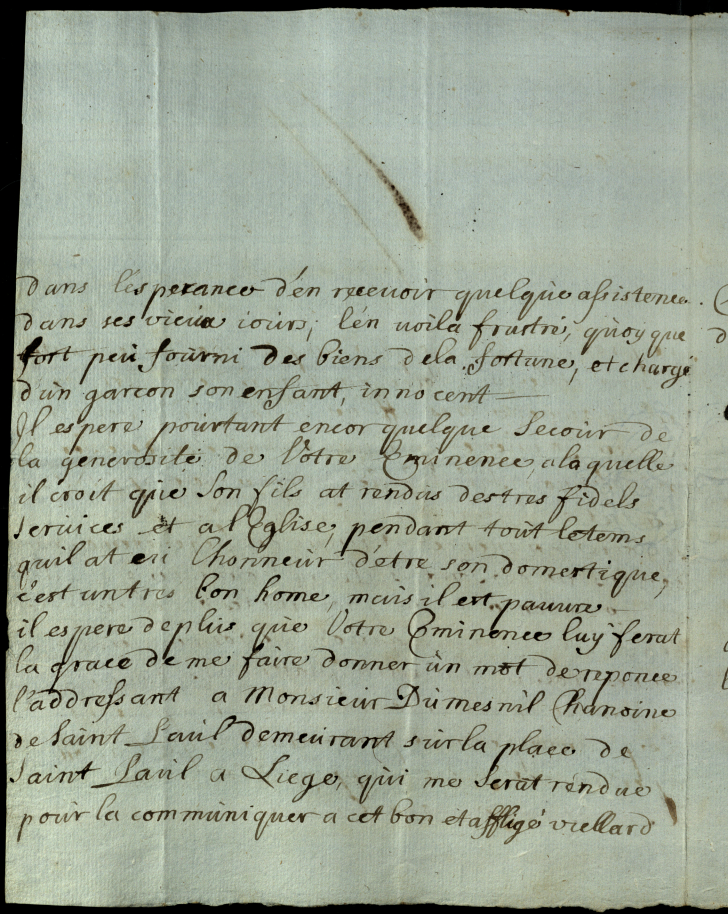 dans lésperance d'én recevoir quelque assistence
dans ses vieux iours, l'én voila frustré, quoy que
fort peu fourni des biens de la fortune, et chargé
d'un garcon son enfant, innocent
Il espere pourtant encor quelque Secour de
la generosité de Votre Eminence, a la quelle
il croit que Son fils at rendus des tres fidels
services et a l'Eglise, pendant tout letems
quil at eu lhonneur d'étre son domestique,
c'est un tres bon home, mais il est pauvre
il espere de plus que Votre Eminence luy ferat
la grace de me faire donner un mot de reponce
l'addressant a Monsieur Dumesnil Chanoine
de Saint Paul demeurant sur la place de
Saint Paul a Liege, qui me Serat rendue
pour la communiquer a cet bon et affligé viellard